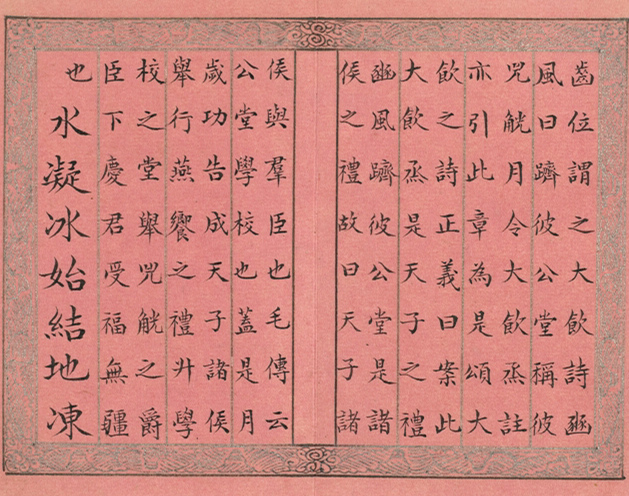 齒位謂之大飲詩豳
風曰躋彼公堂稱彼
兕觥月令大飲烝註
亦引此章為是頌大
飲之詩正義曰案此
大飲烝是天子之禮
豳風躋彼公堂是諸
侯之禮故曰天子諸
侯與羣臣也毛傳云
公堂學校也蓋是月
歲功告成天子諸侯
舉行燕饗之禮升學
校之堂舉兕觥之爵
臣下慶君受福無疆
也水凝冰始結地凍